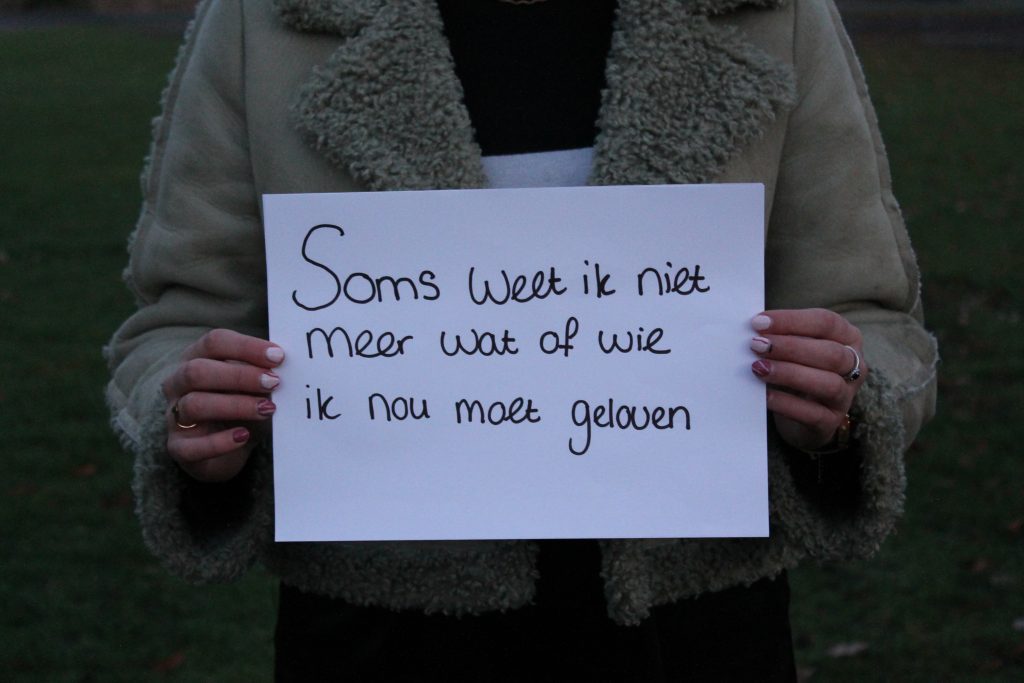 Soms weet ik niet
meer wat of wie
ik nou moet geloven